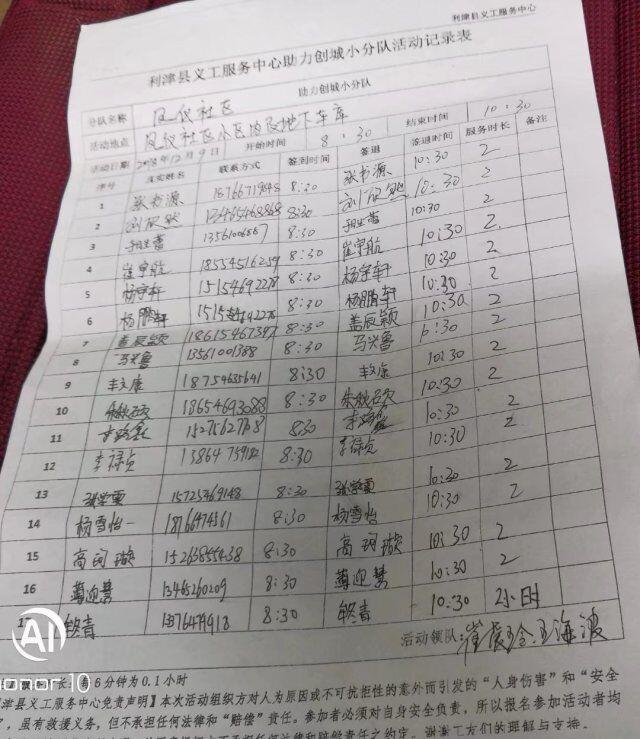 利津县义工服务中心
利津县义工服务中心助力创城小分队活动记录表
分队名称 助力创城小分队
凤仪社区
活动地点 凤仪社区小区内及地下车库
活动日期 2018年12月9日 开始时间 8:30 结束时间 10:30
序号 真实姓名 联系方式 签到时间 签退 签退时间 服务时长 备注
1 8:30 10:30 2
2 刘欣然 13465468868 8:30 刘欣然 10:30 2
3 8:30 10:30 2
4 崔宇航 18554516259 8:30 崔宇航 10:30 2
5 杨宇轩 15154692278 8:30 杨宇轩 10:30 2
6 杨鹏轩 8:30 杨鹏轩 10:30 2
7 盖辰颖 18615467387 8:30 盖辰颖 10:30 2
8 马兴鲁 13561001388 8:30 马兴鲁 10:30 2
9 丰文康 18754635641 8:30 丰文康 10:30 2
10 18654693088 8:30 10:30 2
11 8:30 10:30 2
12 李禄贞 8:30 李禄贞 10:30 2
13 张学雯 15725469148 8:30 张学雯 10:30 2
14 杨雪怡 8:30 杨雪怡 10:30 2
15 高珂璇 15263855438 8:30 高珂璇 10:30 2
16 13465260209 8:30 10:30 2
17 8:30 10:30 2小时
活动领队:
6分钟为0.1小时
津县义工服务中心免责声明】本次活动组织方对人为原因或不可抗拒性的意外而引发的“人身伤害”和“安全
”，虽有救援义务，但不承担任何法律和“赔偿”责任。参加者必须对自身安全负责，所以报名参加活动者均
谢谢义工们的理解与支持。
AI
honor 10